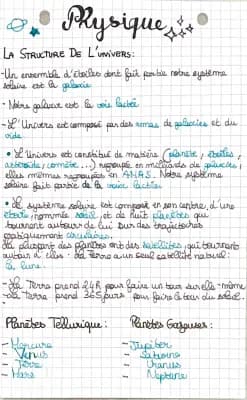 Physique
LA STRUCTURE DE L'UNIVERS:
-Un ensemble d'étoiles dont fait partie notre système
solaire est la galaxie
- Notre galaxie est la voie lactée
- L'Univers est composé par des amas de galaxies et du
vide
• L'Univers est constitué de matière (planète, étoiles,
astéroïde, comète...) regroupé en milliards de galaxies,
elles mêmes regroupés en AMAS. Notre système
solaire fait partie de la voie lactée.
• Le système solaire est composé en son centre, d'une
étoile, nommée soleil, et de huit planètes qui
tournent autour de lui sur des trajectoires
pratiquement circulaires.
La plupart des planètes ont des satellites, qui tournent
autour d'elles. La Terre a un seul satellite naturel:
la lune.
- La Terre prend 24h pour faire un tour sur elle-même
- La Terre prend 365 jours pour faire le tour du soleil.
Planètes Tellurique:
Planètes Gazeuses:
- Mercure
- Vénus
- Terre
- Mars
- Jupiter
- Saturne
- Uranus
- Neptune